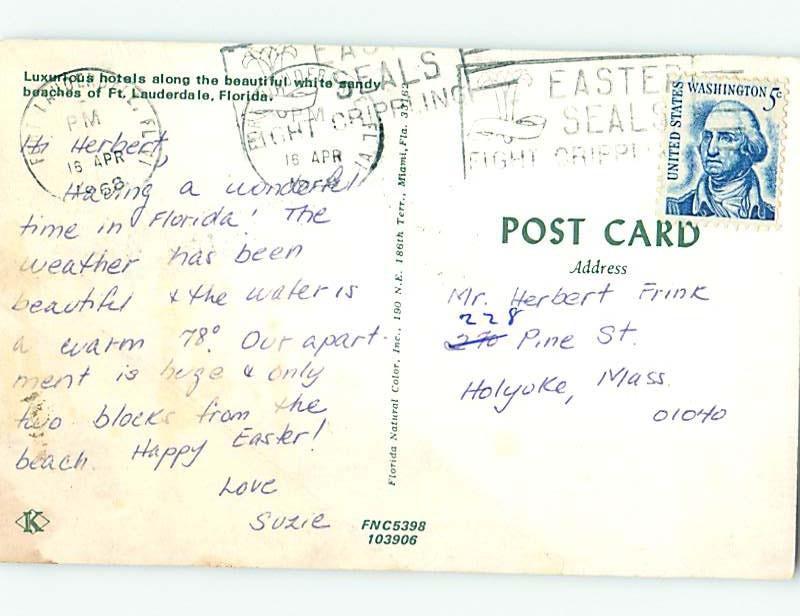 Luxurious hotels along the beautiful white sandy
beaches of Ft. Lauderdale, Florida.
PM
16 APR
1968
PM
16 APR
EASTER
SEALS
FIGHT CRIPPLING
EASTER
SEALS
FIGHT CRIPPLI
UNITED STATES
WASHINGTON 5c
Hi Herbert,
Having a wonderful
time in Florida! The
weather has been
beautiful & the water is
a warm 78°. Our apart-
ment is huge & only
two blocks from the
beach. Happy Easter!
Love
Suzie
K
FNC5398
103906
Florida Natural Color, Inc., 190 N.E. 186th Terr., Miami, Fla. 33162
POST CARD
Address
Mr. Herbert Frink
228
270 Pine St.
Holyoke, Mass.
01040